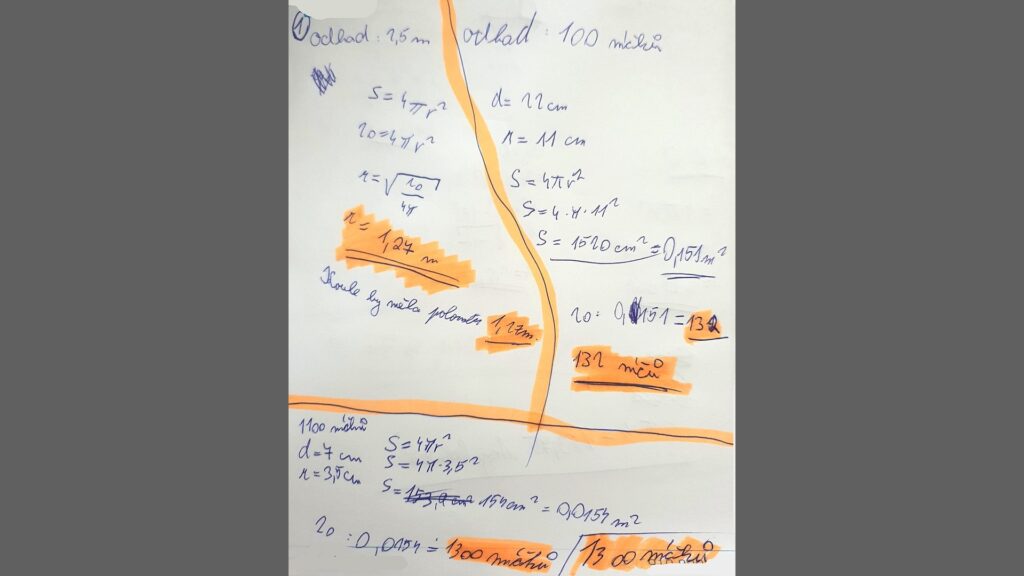 ① odhad : 2,5 m
S = 4πr²
20 = 4πr²
r = √20/4π
r = 1,27 m
Koule by měla poloměr 1,27m.
odhad : 100 míčků
d = 22 cm
r = 11 cm
S = 4πr²
S = 4 · π · 11²
S = 1520 cm² = 0,151 m²
20 : 0,151 = 132
132 míčů
1100 míčků
d = 7 cm
r = 3,5 cm
S = 4πr²
S = 4π·3,5²
S = 154 cm² = 0,0154 m²
20 : 0,0154 ≐ 1300 míčků
1300 míčků